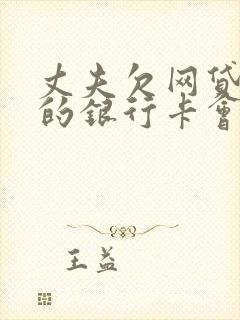 丈夫欠网贷
的银行卡會
王益